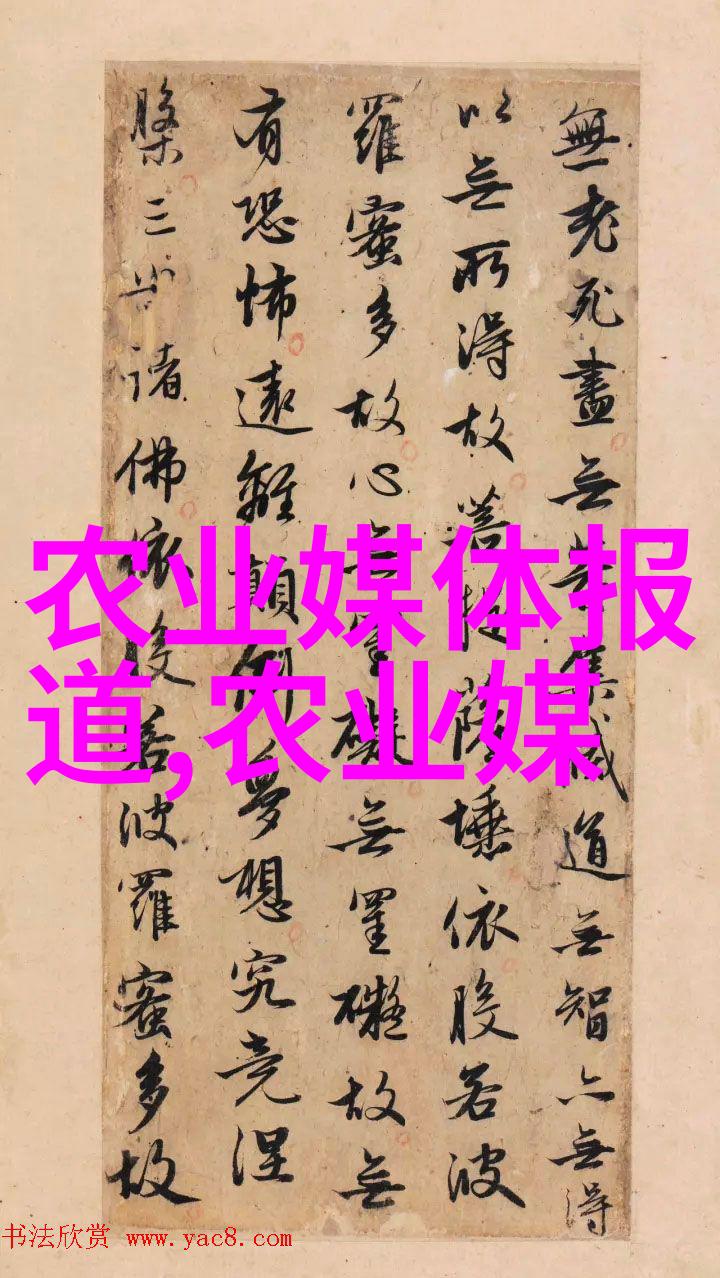 無老死盡無苦集滅道無智亦無得
以無所得故菩提薩埵依般若波
羅蜜多故心無罣礙無罣礙故無
有恐怖遠離顛倒夢想究竟涅
槃三世諸佛依般若波羅蜜多故
农业媒体报
道,农业媒
书法欣赏 www.yac8.com